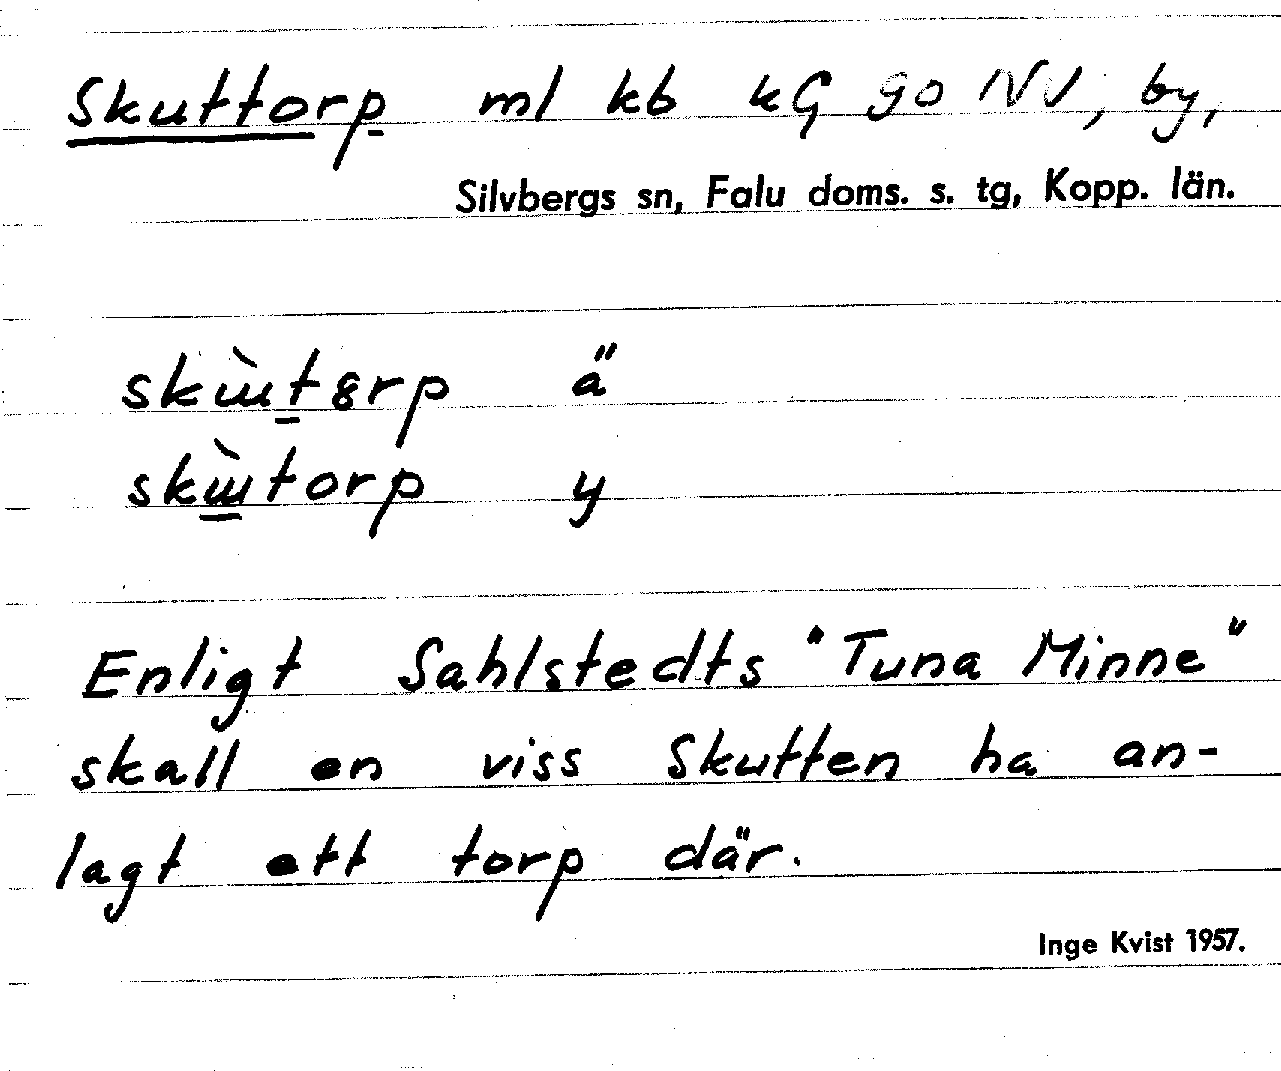 Skuttorp ml kb kG 90 NV, by,
Silvbergs sn, Falu doms. s. tg, Kopp. län.
skɯ̀t8rp ä
skɯ̀torp y
Enligt Sahlstedts "Tuna Minne"
skall en viss Skutten ha an-
lagt ett torp där.
Inge Kvist 1957.